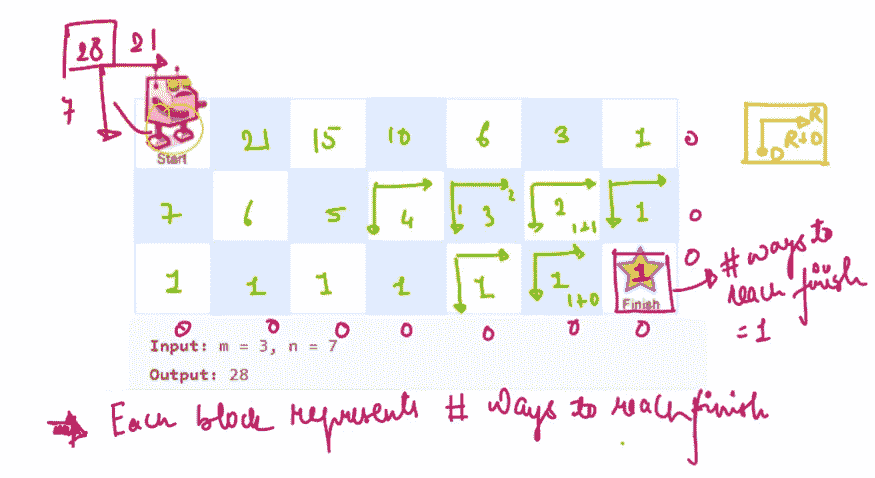 28 21
7
Start 21 15 10 6 3 1 0
R
R+D
D
7 6 5 4 1 3 2 2 1+1 1 0
1 1 1 1 1 1 1+0 1 0
Finish
# ways to
reach finish
= 1
0 0 0 0 0 0 0
Input: m = 3, n = 7
Output: 28
Each block represents # Ways to reach finish